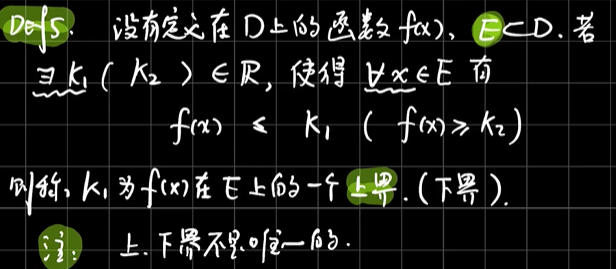 Def5. 设有定义在D上的函数f(x), E⊂D. 若
∃K₁(K₂)∈R, 使得 ∀x∈E 有
f(x) ≤ K₁ (f(x)≥K₂)
则称: K₁为f(x)在E上的一个上界.(下界).
注: 上.下界不是唯一的.